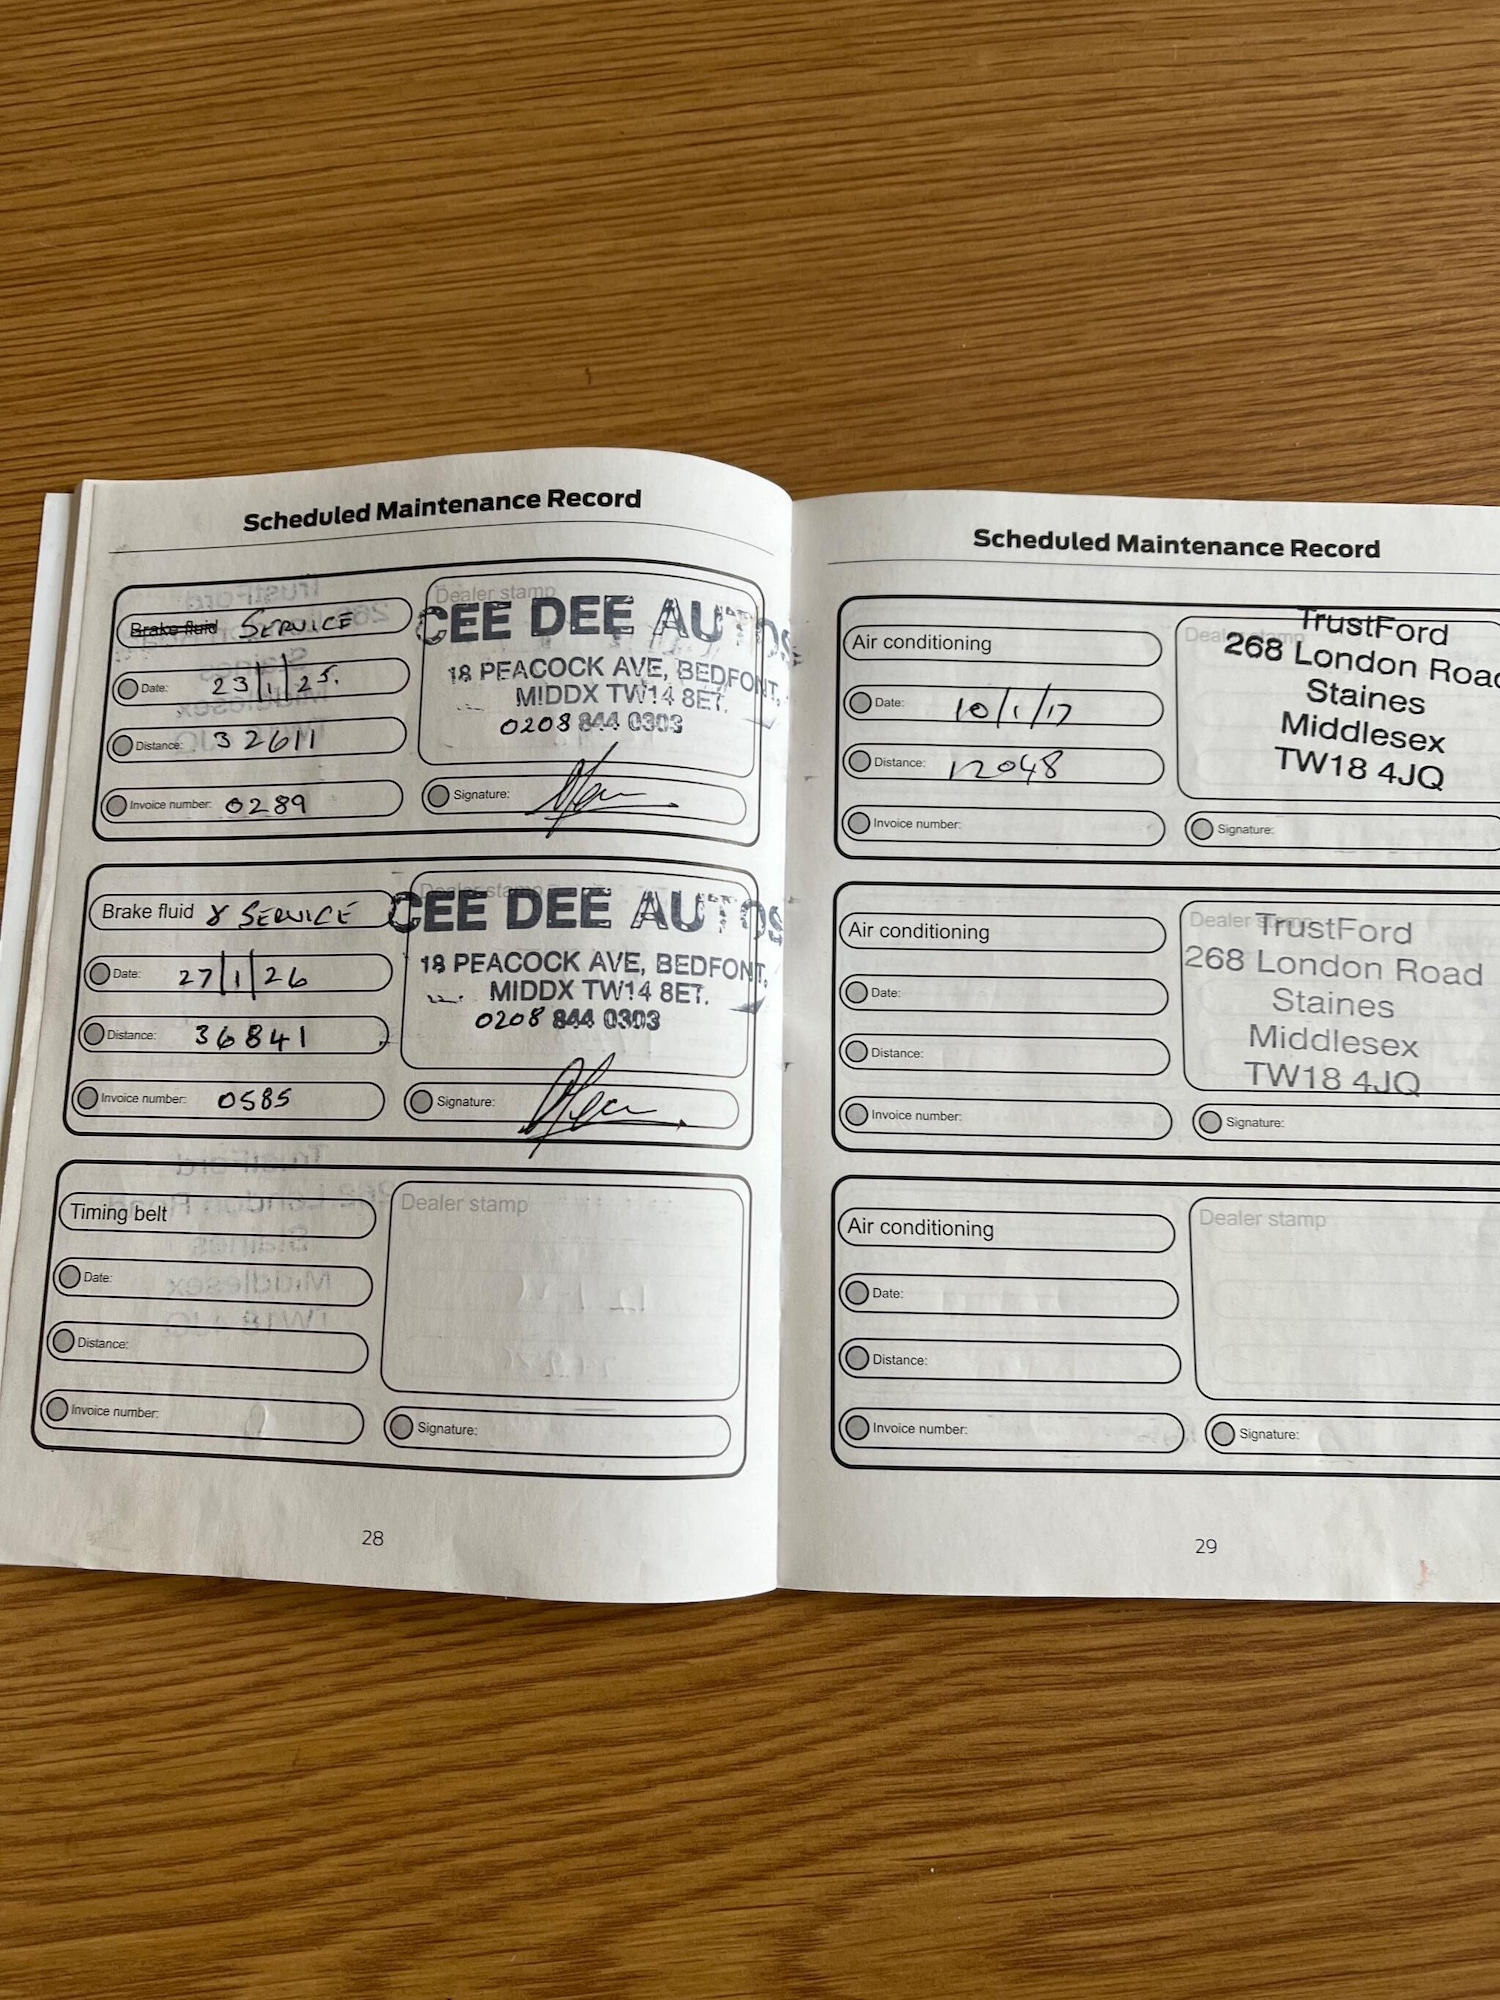 Scheduled Maintenance Record
Brake fluid SERVICE
Date: 23/1/25.
Distance: 32611
Invoice number: 0289
Dealer stamp
CEE DEE AUTOS
18 PEACOCK AVE, BEDFONT,
MIDDX TW14 8ET.
0208 844 0303
Signature:
Brake fluid & SERVICE
Date: 27/1/26
Distance: 36841
Invoice number: 0585
Dealer stamp
CEE DEE AUTOS
18 PEACOCK AVE, BEDFONT,
MIDDX TW14 8ET.
0208 844 0303
Signature:
Timing belt
Date:
Distance:
Invoice number:
Dealer stamp
Signature:
28
Scheduled Maintenance Record
Air conditioning
Date: 10/1/17
Distance: 12048
Invoice number:
Dealer stamp
TrustFord
268 London Road
Staines
Middlesex
TW18 4JQ
Signature:
Air conditioning
Date:
Distance:
Invoice number:
Dealer stamp
TrustFord
268 London Road
Staines
Middlesex
TW18 4JQ
Signature:
Air conditioning
Date:
Distance:
Invoice number:
Dealer stamp
Signature:
29